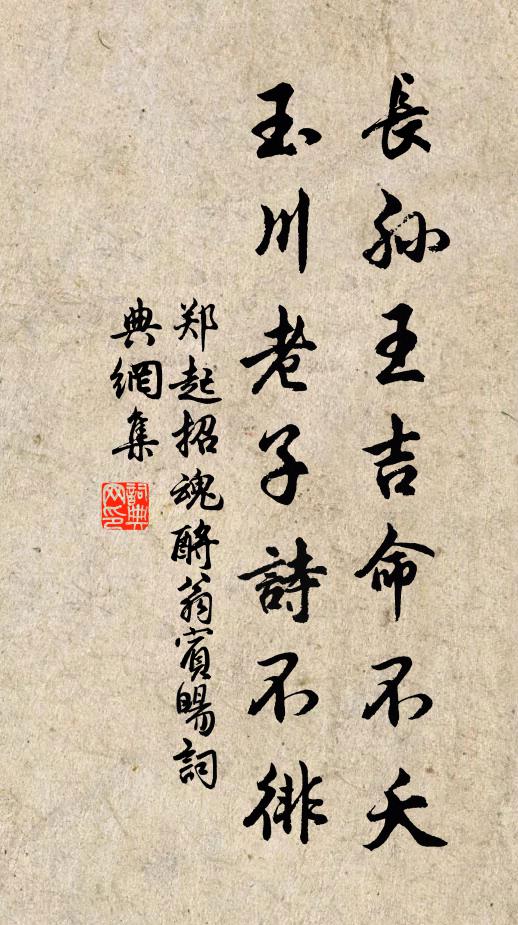 長孫王吉命不夭
玉川老子詩不徘
郑起招魂酹翁賓賜詞
典網集
詞典
网印